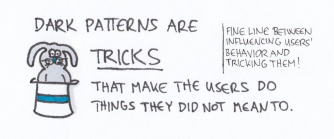 DARK PATTERNS ARE
TRICKS
THAT MAKE THE USERS DO
THINGS THEY DID NOT MEAN TO.
FINE LINE BETWEEN
INFLUENCING USERS'
BEHAVIOR AND
TRICKING THEM!